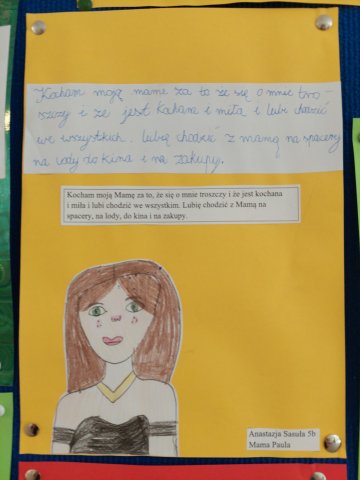 Kocham moją mame za to że się o mnie tro-
szczy i że jest kocham i miła i lubi chodzić
we wszystkich. lubię chodzić z mamą na spacery
na lody do kina i na zakupy.
Kocham moją Mamę za to, że się o mnie troszczy i że jest kochana
i miła i lubi chodzić we wszystkim. Lubię chodzić z Mamą na
spacery, na lody, do kina i na zakupy.
Anastazja Sasuła 5b
Mama Paula